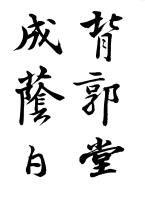 背郭堂
成蔭白